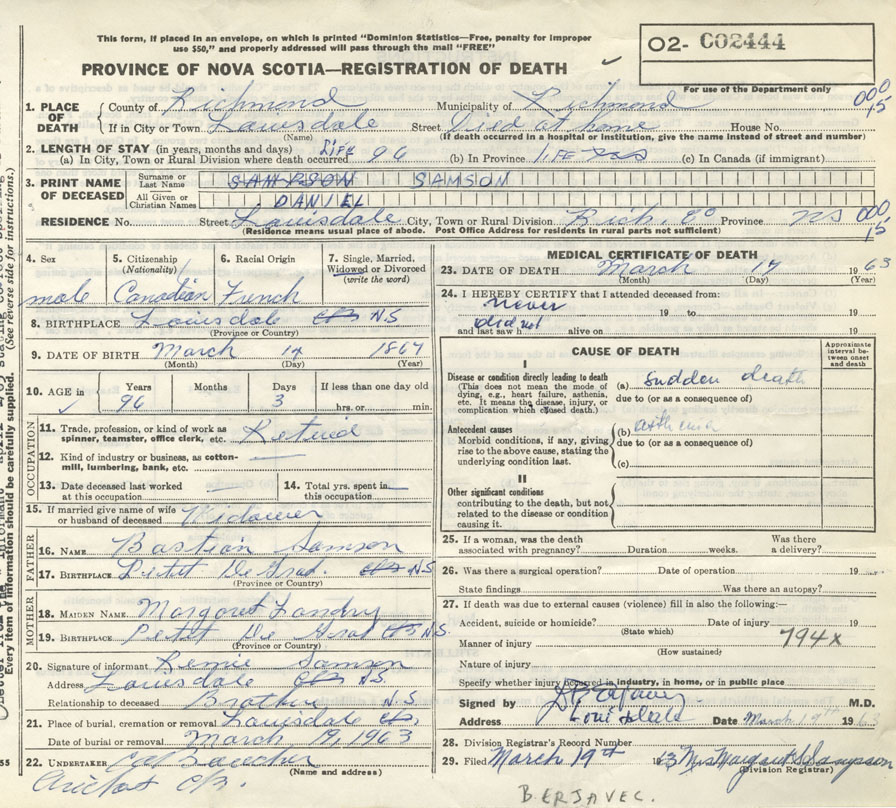 This form, if placed in an envelope, on which is printed "Dominion Statistics—Free, penalty for improper
use $50," and properly addressed will pass through the mail "FREE"
O2- C02444
PROVINCE OF NOVA SCOTIA—REGISTRATION OF DEATH
For use of the Department only
1. PLACE OF DEATH County of Richmond Municipality of Richmond 000
If in City or Town Louisdale Street Died at home House No. 15
(Name) (If death occurred in a hospital or institution, give the name instead of street and number)
2. LENGTH OF STAY (in years, months and days)
(a) In City, Town or Rural Division where death occurred life 96 (b) In Province life (c) In Canada (if immigrant)
3. PRINT NAME OF DECEASED Surname or Last Name SAMPSON SAMSON
All Given or Christian Names DANIEL
RESIDENCE No. Street Louisdale City, Town or Rural Division Rich. Co Province NS 000
(Residence means usual place of abode. Post Office Address for residents in rural parts not sufficient) 15
4. Sex 5. Citizenship (Nationality) 6. Racial Origin 7. Single, Married, Widowed or Divorced (write the word)
male Canadian French
8. BIRTHPLACE Louisdale CB NS
(Province or Country)
9. DATE OF BIRTH March 14 1867
(Month) (Day) (Year)
10. AGE in Years Months Days If less than one day old
96 3 hrs. or min.
OCCUPATION
11. Trade, profession, or kind of work as spinner, teamster, office clerk, etc. Retired
12. Kind of industry or business, as cotton-mill, lumbering, bank, etc.
13. Date deceased last worked at this occupation 14. Total yrs. spent in this occupation
15. If married give name of wife or husband of deceased Widower
FATHER
16. NAME Bastian Samson
17. BIRTHPLACE Petit De Grat CB NS
(Province or Country)
MOTHER
18. MAIDEN NAME Margaret Landry
19. BIRTHPLACE Petit De Grat CB NS.
(Province or Country)
20. Signature of informant Remie Samson
Address Louisdale CB NS
Relationship to deceased Brother N.S
21. Place of burial, cremation or removal Louisdale CB
Date of burial or removal March 19, 1963
22. UNDERTAKER Boucher
(Name and address)
Arichat CB.
MEDICAL CERTIFICATE OF DEATH
23. DATE OF DEATH March 17 1963
(Month) (Day) (Year)
24. I HEREBY CERTIFY that I attended deceased from:
never 19 to 19
and last saw h did not mean alive on 19
CAUSE OF DEATH
Approximate interval between onset and death
I
Disease or condition directly leading to death
(This does not mean the mode of dying, e.g., heart failure, asthenia, etc. It means the disease, injury, or complication which caused death.)
(a) sudden death
due to (or as a consequence of)
Antecedent causes
Morbid conditions, if any, giving rise to the above cause, stating the underlying condition last.
(b)
due to (or as a consequence of)
(c)
II
Other significant conditions
contributing to the death, but not related to the disease or condition causing it.
25. If a woman, was the death associated with pregnancy? Duration weeks. Was there a delivery?
26. Was there a surgical operation? Date of operation 19
State findings Was there an autopsy?
27. If death was due to external causes (violence) fill in also the following:—
Accident, suicide or homicide? Date of injury 19
(State which)
Manner of injury 794x
(How sustained)
Nature of injury
Specify whether injury occurred in industry, in home, or in public place
Signed by B Erjavec M.D.
Address Louisdale Date March 19th 1963
28. Division Registrar's Record Number
29. Filed March 19th 1963 Mrs Margaret S Sampson
(Division Registrar)
B. ERJAVEC.
Every item of information should be carefully supplied.
(See reverse side for instructions.)
55